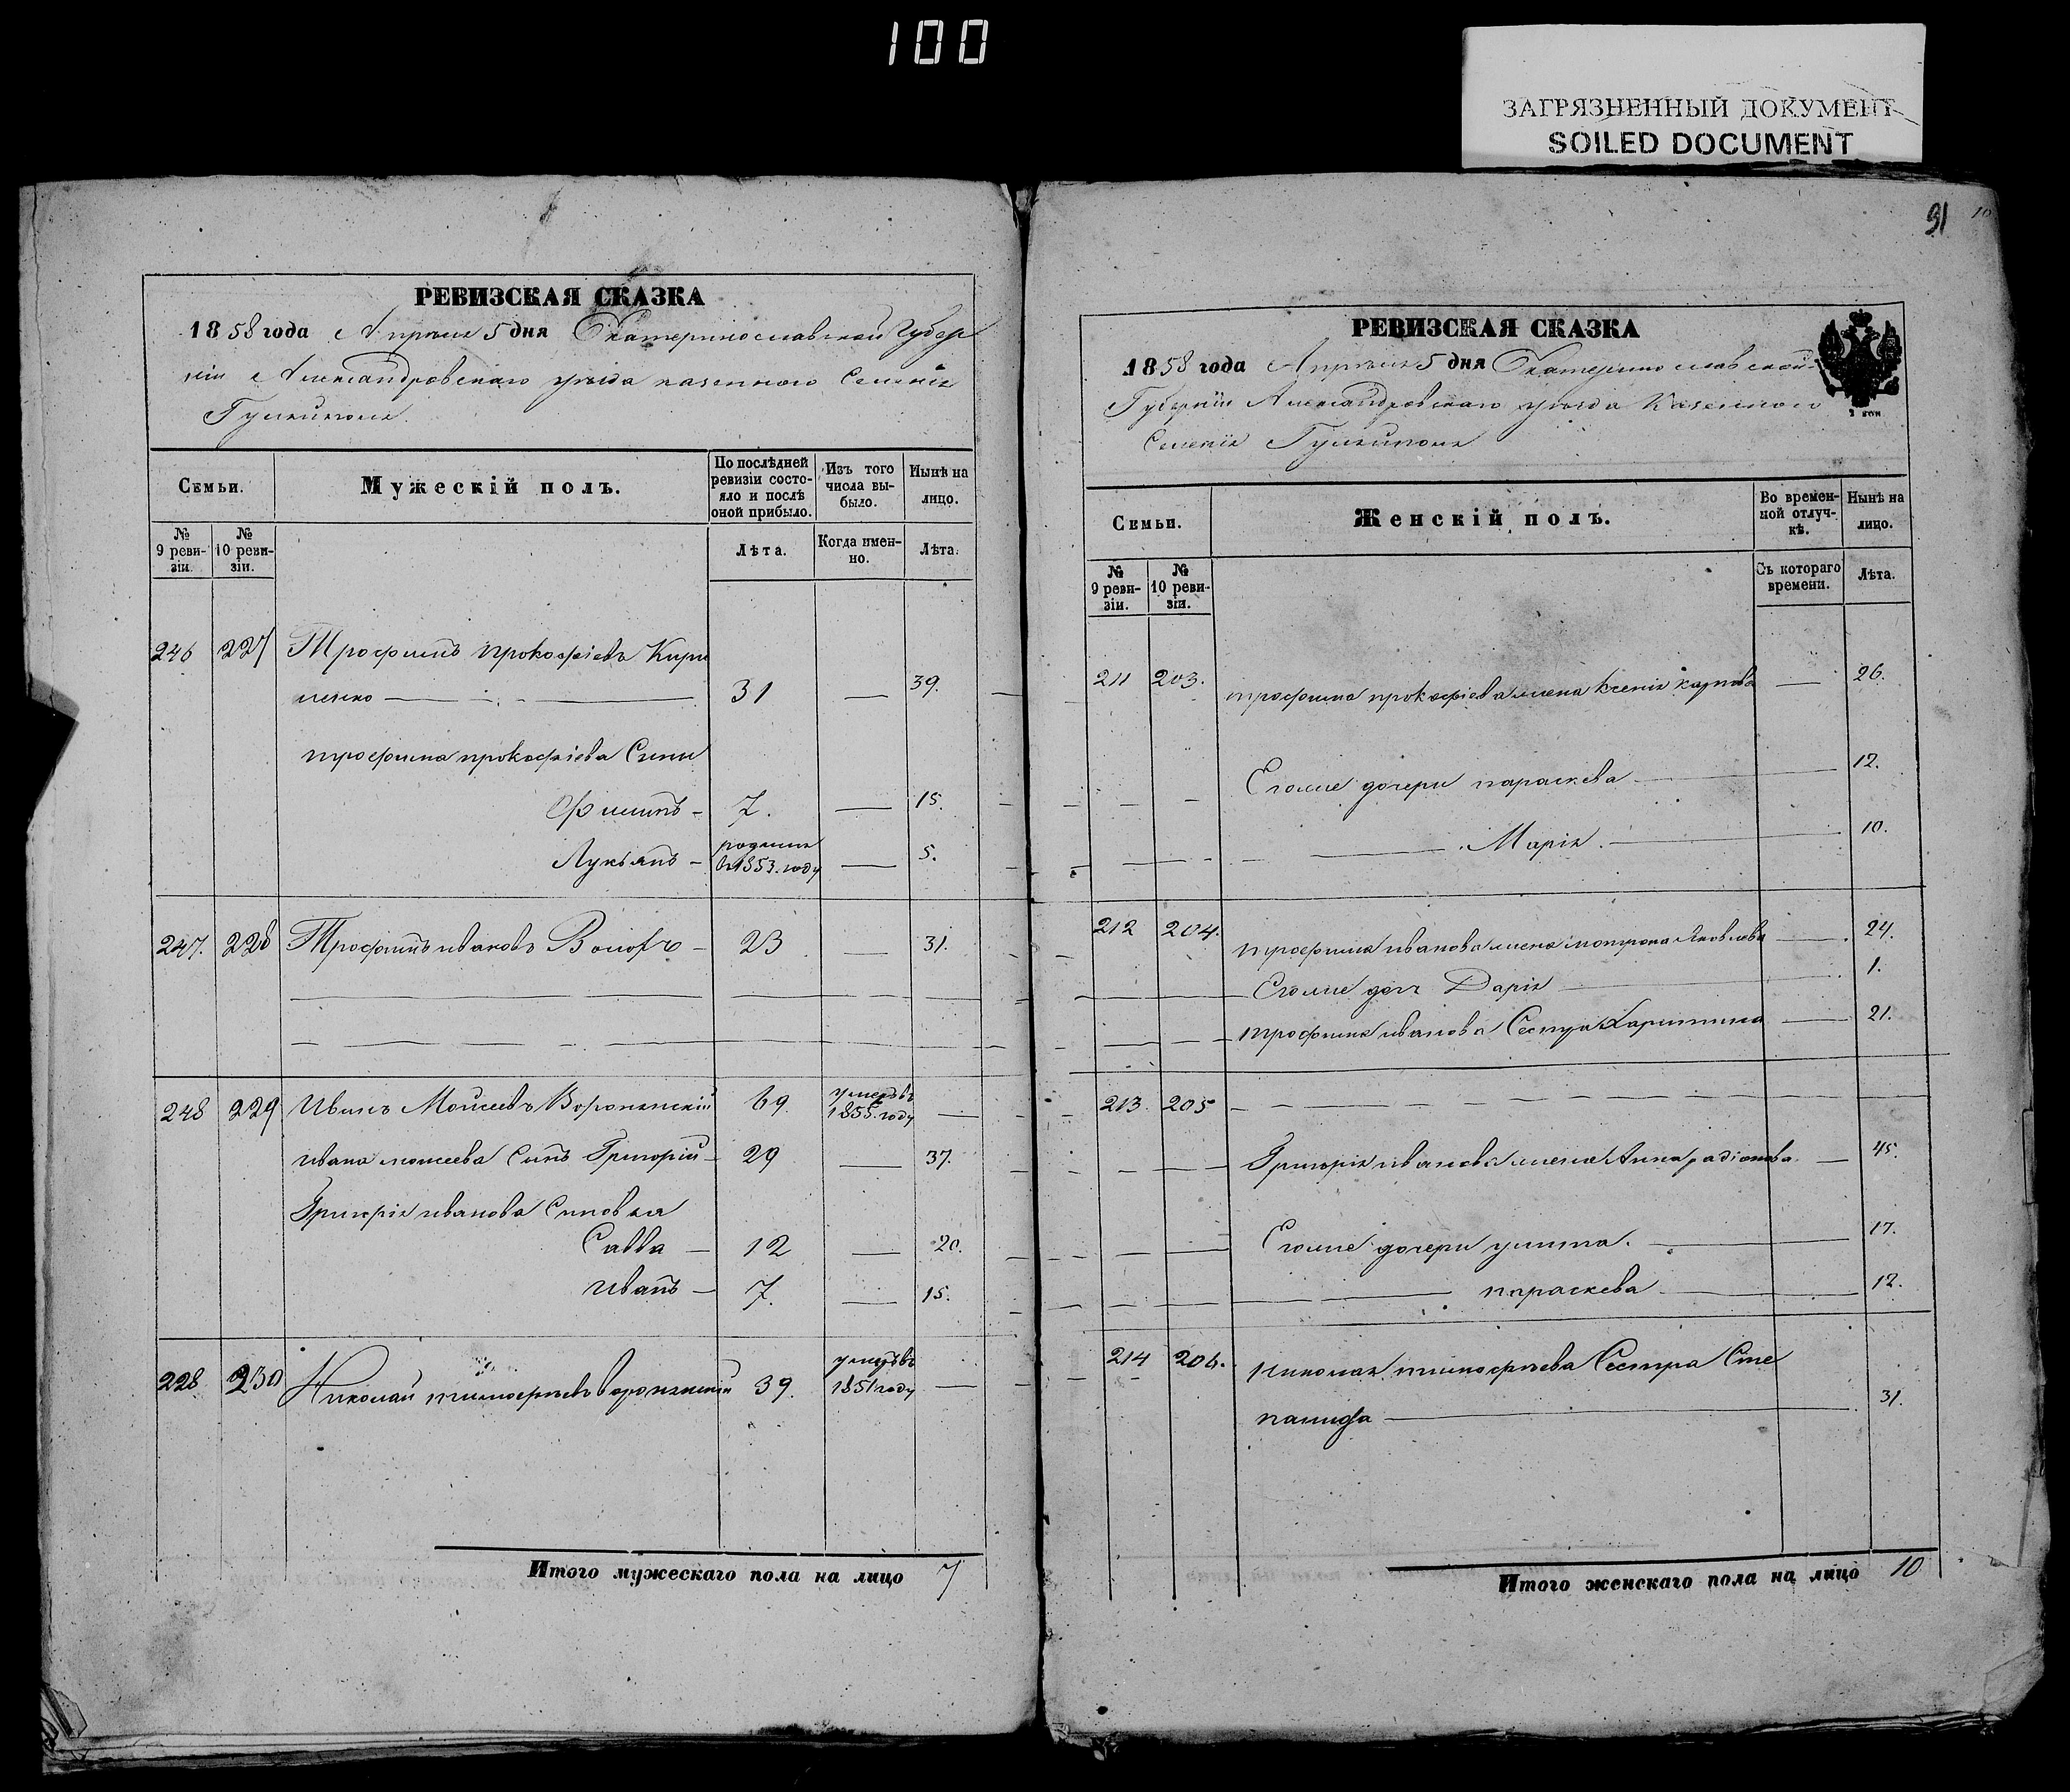 100
ЗАГРЯЗНЕННЫЙ ДОКУМЕНТ
SOILED DOCUMENT
РЕВИЗСКАЯ СКАЗКА
1858 года Апреля 5 дня Екатеринославской Губер
ніи Александровскаго уезда казенного Селенія
Гуляйполя
Семьи.
Мужескій полъ.
По послѣдней ревизіи состояло и послѣ оной прибыло.
Изъ того числа выбыло.
Нынѣ на лицо.
№ 9 ревизіи.
№ 10 ревизіи.
Лѣта.
Когда именно.
Лѣта.
246 227 Трофимъ прокофіевъ Кири
ленко 31 — 39.
трофима прокофіева Сыны
Филипъ - 7. — 15.
Лукьянъ - родился в 1853. году — 5.
247. 228 Трофимъ ивановъ — 23 — 31.
248 229 Иванъ Моисеевъ 69. умеръ въ 1855. году —
ивана моисеева Сынъ Григорій 29 — 37.
Григорія иванова Сыновья
Савва — 12 — 20.
иванъ — 7. — 15.
228 230 Николай тимофеевъ 39. умеръ въ 1851 году —
Итого мужескаго пола на лицо 7
91
10
РЕВИЗСКАЯ СКАЗКА
1858 года Апреля 5 дня Екатеринославской
Губерніи Александровскаго уезда Казенного
Селенія Гуляйполя
Семьи.
Женскій полъ.
Во временной отлучкѣ.
Нынѣ на лицо.
№ 9 ревизіи.
№ 10 ревизіи.
Съ котораго времени.
Лѣта.
211 203. трофима прокофіева жена ксенія карпова — 26.
Егоже дочери параскева 12.
Марія. 10.
212 204. трофима иванова жена мотрона Яковлева — 24.
Егоже дочь Дарія 1.
трофима иванова Сестра Харитина — 21.
213. 205
Григорія иванова жена Анна радіонова. — 45.
Егоже дочери улита. 17.
параскева 12.
214 206. николая тимофеева Сестра Сте
панида 31.
Итого женскаго пола на лицо 10